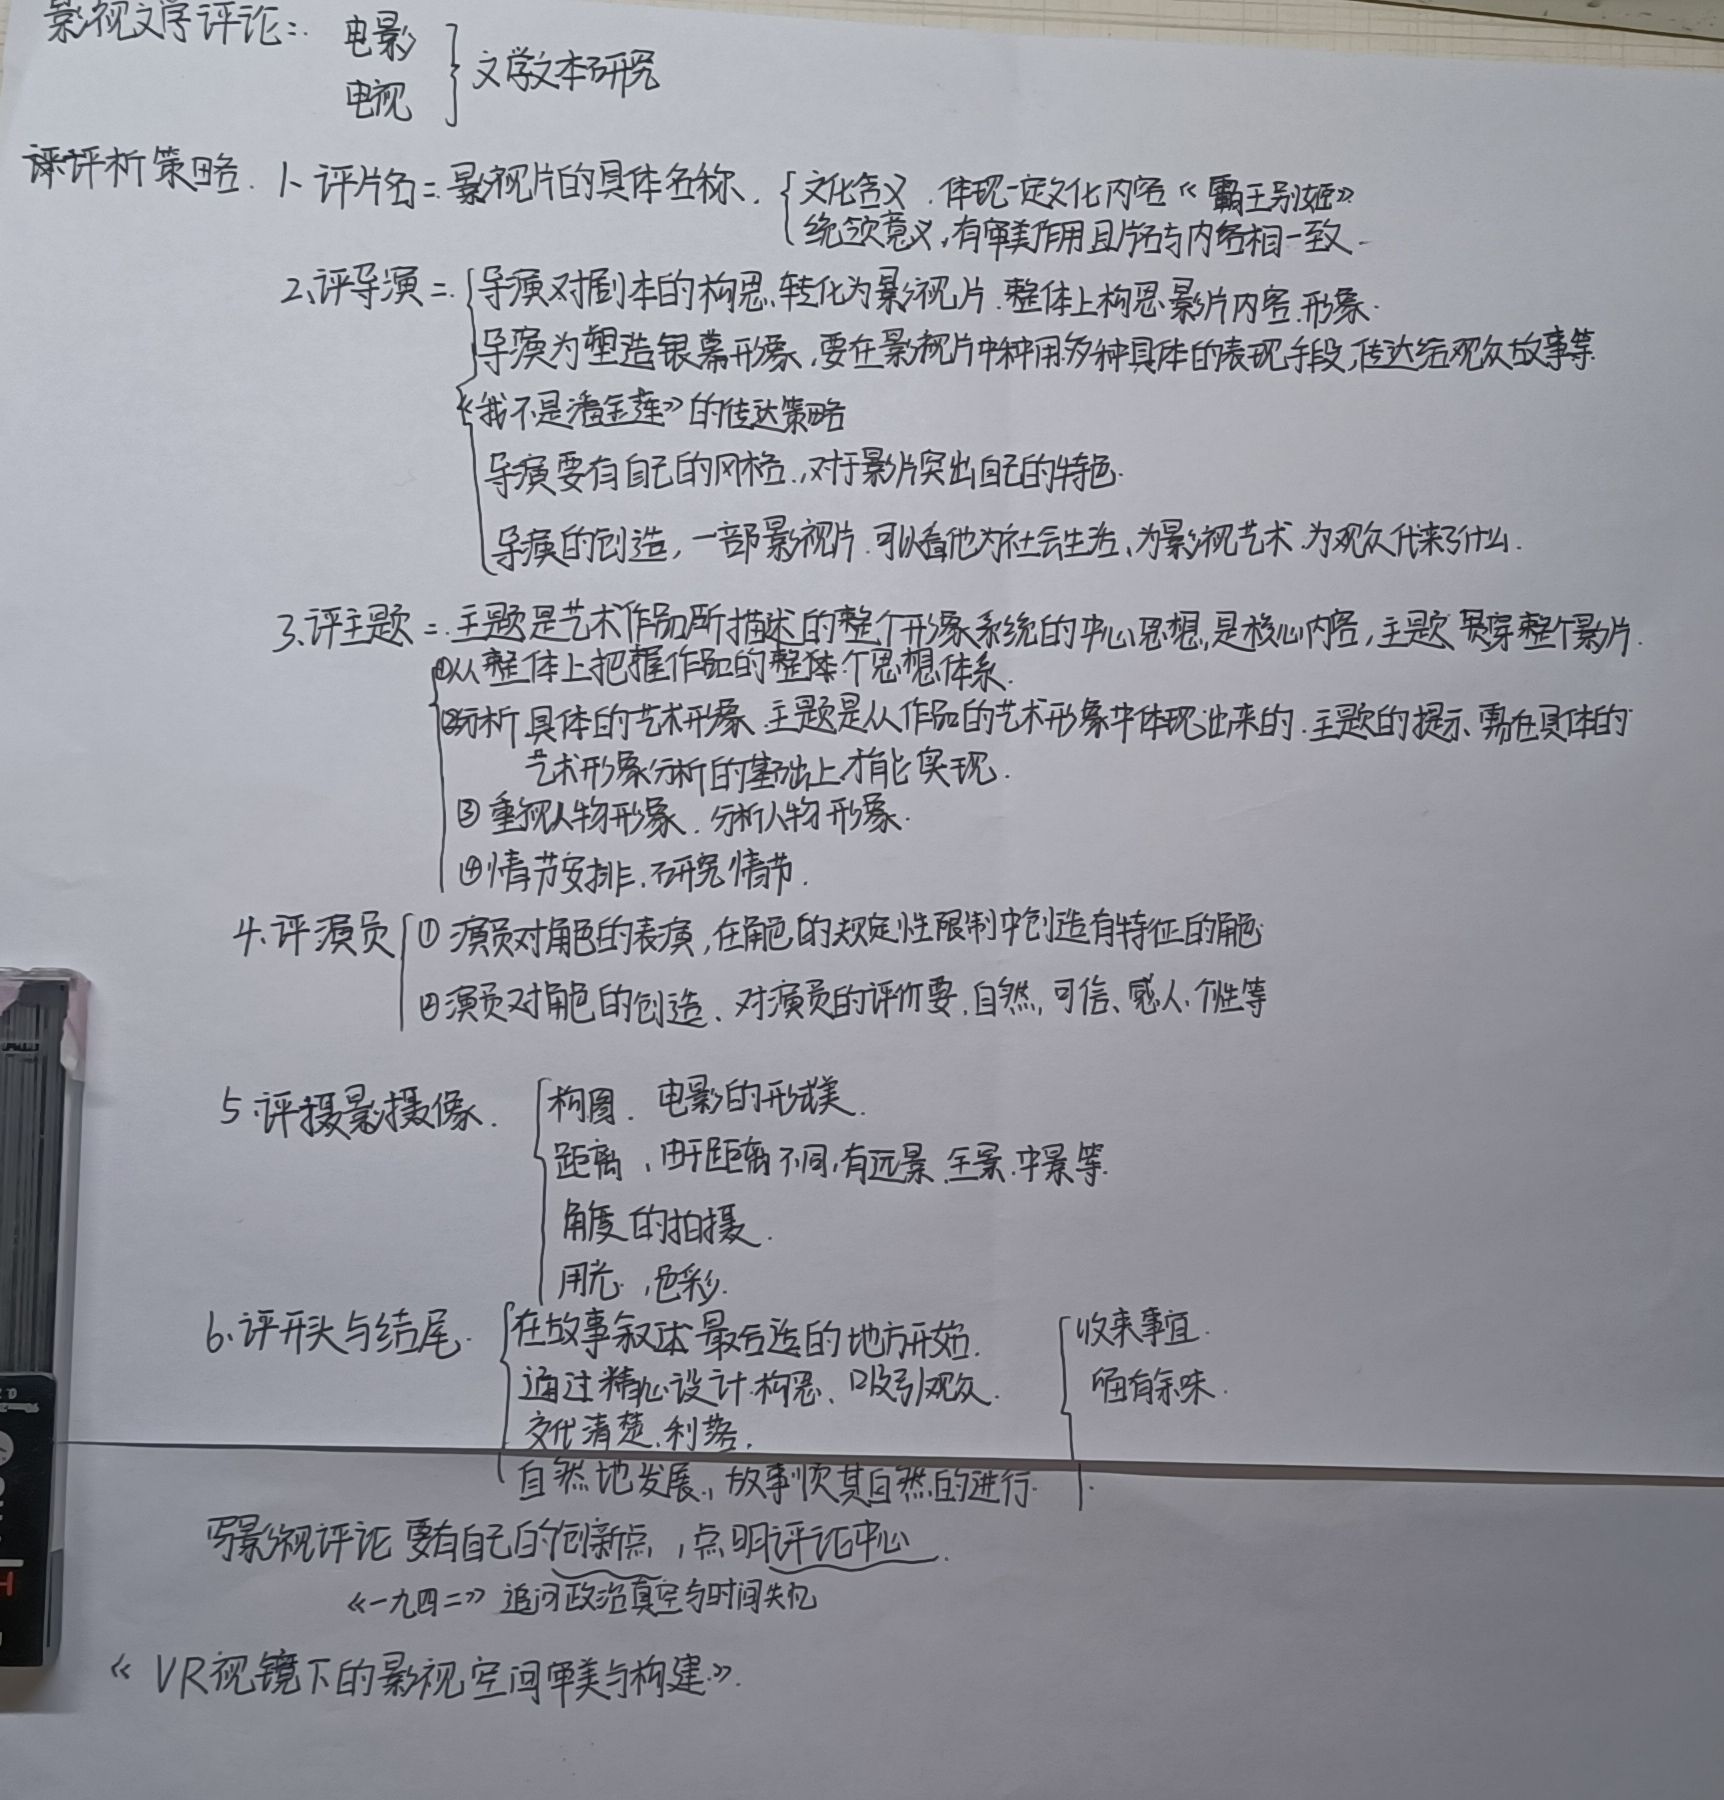 影视文学评论: 电影
电视
文学文本研究
评析策略. 1、评片名: 影视片的具体名称.
文化含义. 体现一定文化内容《霸王别姬》
统领意义, 有审美作用且片名与内容相一致.
2、评导演: 导演对剧本的构思、转化为影视片. 整体上构思影片内容. 形象.
导演为塑造银幕形象, 要在影视片中种用多种具体的表现手段, 传达给观众故事等
《我不是潘金莲》的传达策略
导演要有自己的风格, 对于影片突出自己的特色.
导演的创造, 一部影视片. 可以看他为社会生活、为影视艺术. 为观众代来了什么.
3、评主题: 主题是艺术作品所描述的整个形象系统的中心思想, 是核心内容, 主题贯穿整个影片.
①从整体上把握作品的整个思想体系.
②分析具体的艺术形象. 主题是从作品的艺术形象中体现出来的. 主题的提示、需在具体的
艺术形象分析的基础上才能实现.
③重视人物形象. 分析人物形象.
④情节安排. 研究情节.
4、评演员 ①演员对角色的表演, 在角色的规定性限制中创造有特征的角色
②演员对角色的创造、对演员的评价要, 自然, 可信、感人、个性等
5.评摄影摄像. 构图. 电影的形式美.
距离, 由于距离不同, 有远景. 全景. 中景等.
角度的拍摄.
用光, 色彩.
6、评开头与结尾. 在故事叙述最合适的地方开始. 收束事宜.
通过精心设计. 构思、吸引观众. 留有余味.
交代清楚. 利落.
自然地发展, 故事顺其自然的进行.
写影视评论要有自己的创新点, 点明评论中心.
《一九四二》追问政治真空与时间失忆
《VR视镜下的影视空间审美与构建》.